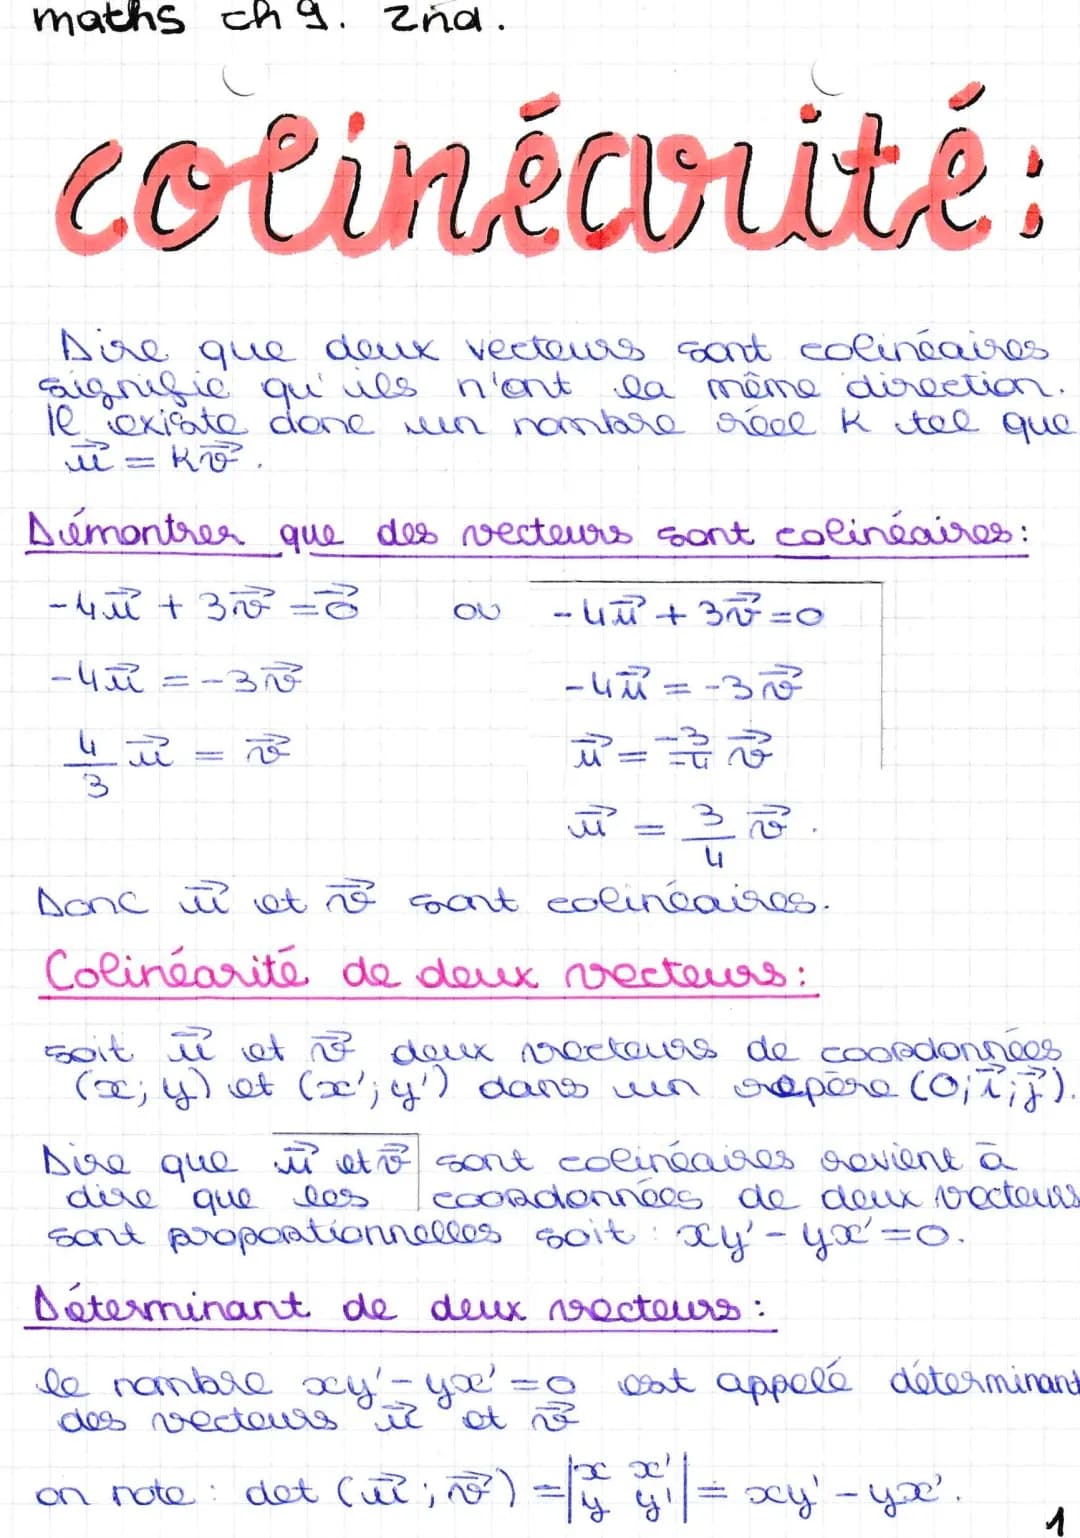 maths ch 9. 2nd.
colinéarité:
Dire que deux vecteurs sont colinéaires
signifie qu'ils n'ont la même direction.
Il existe donc un nombre réel k tel que
u⃗ = kv⃗.
Démontrer que des vecteurs sont colinéaires:
-4u⃗ + 3v⃗ = 0⃗ ou -4u⃗ + 3v⃗ = 0
-4u⃗ = -3v⃗ -4u⃗ = -3v⃗
4/3 u⃗ = v⃗ u⃗ = -3/-4 v⃗
u⃗ = 3/4 v⃗.
Donc u⃗ et v⃗ sont colinéaires.
Colinéarité de deux vecteurs:
soit u⃗ et v⃗ deux vecteurs de coordonnées
(x; y) et (x'; y') dans un repère (O; i⃗; j⃗).
Dire que u⃗ et v⃗ sont colinéaires revient à
dire que les coordonnées de deux vecteurs
sont proportionnelles soit : xy' - yx' = 0.
Déterminant de deux vecteurs :
le nombre xy' - yx' = 0 est appelé déterminant
des vecteurs u⃗ et v⃗
on note : det (u⃗ ; v⃗) = |x x' y y'| = xy' - yx'.
1